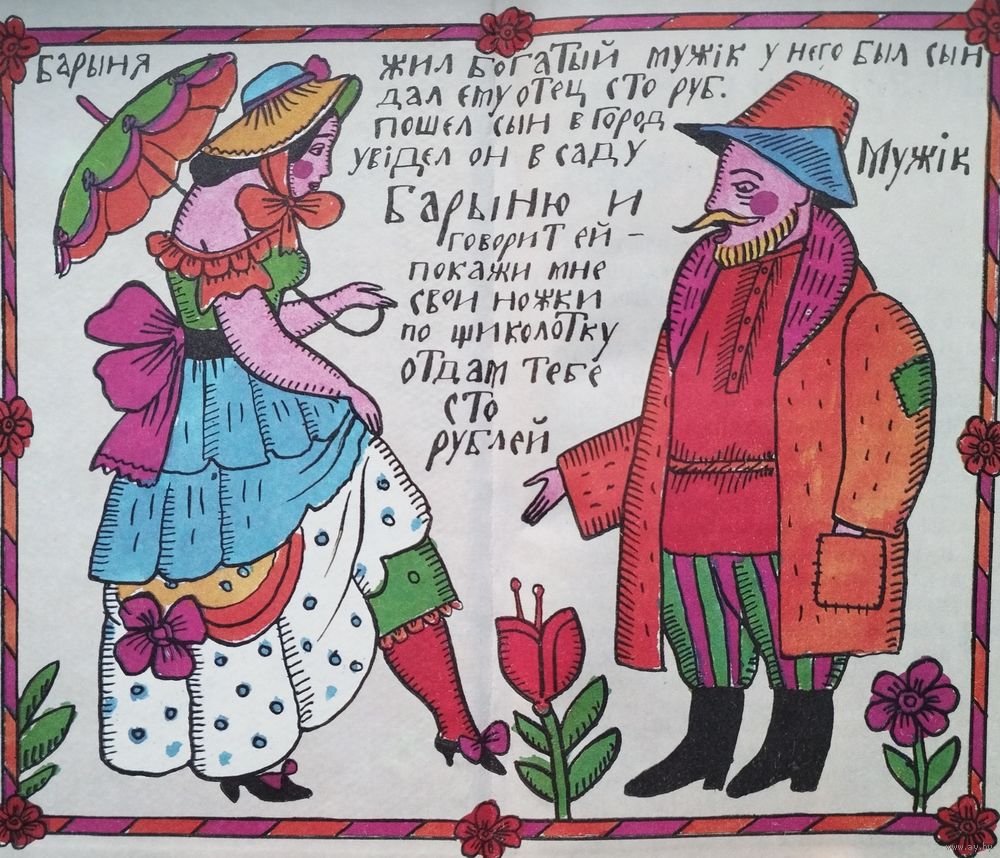 Барыня
жил богатый мужік у него был сын
дал єму отец сто руб.
пошел сын в город
увідел он в саду
Барыню и
говорит ей –
покажи мне
свои ножки
по шиколотку
отдам тебе
сто
рублей
Мужік
www.ay.by